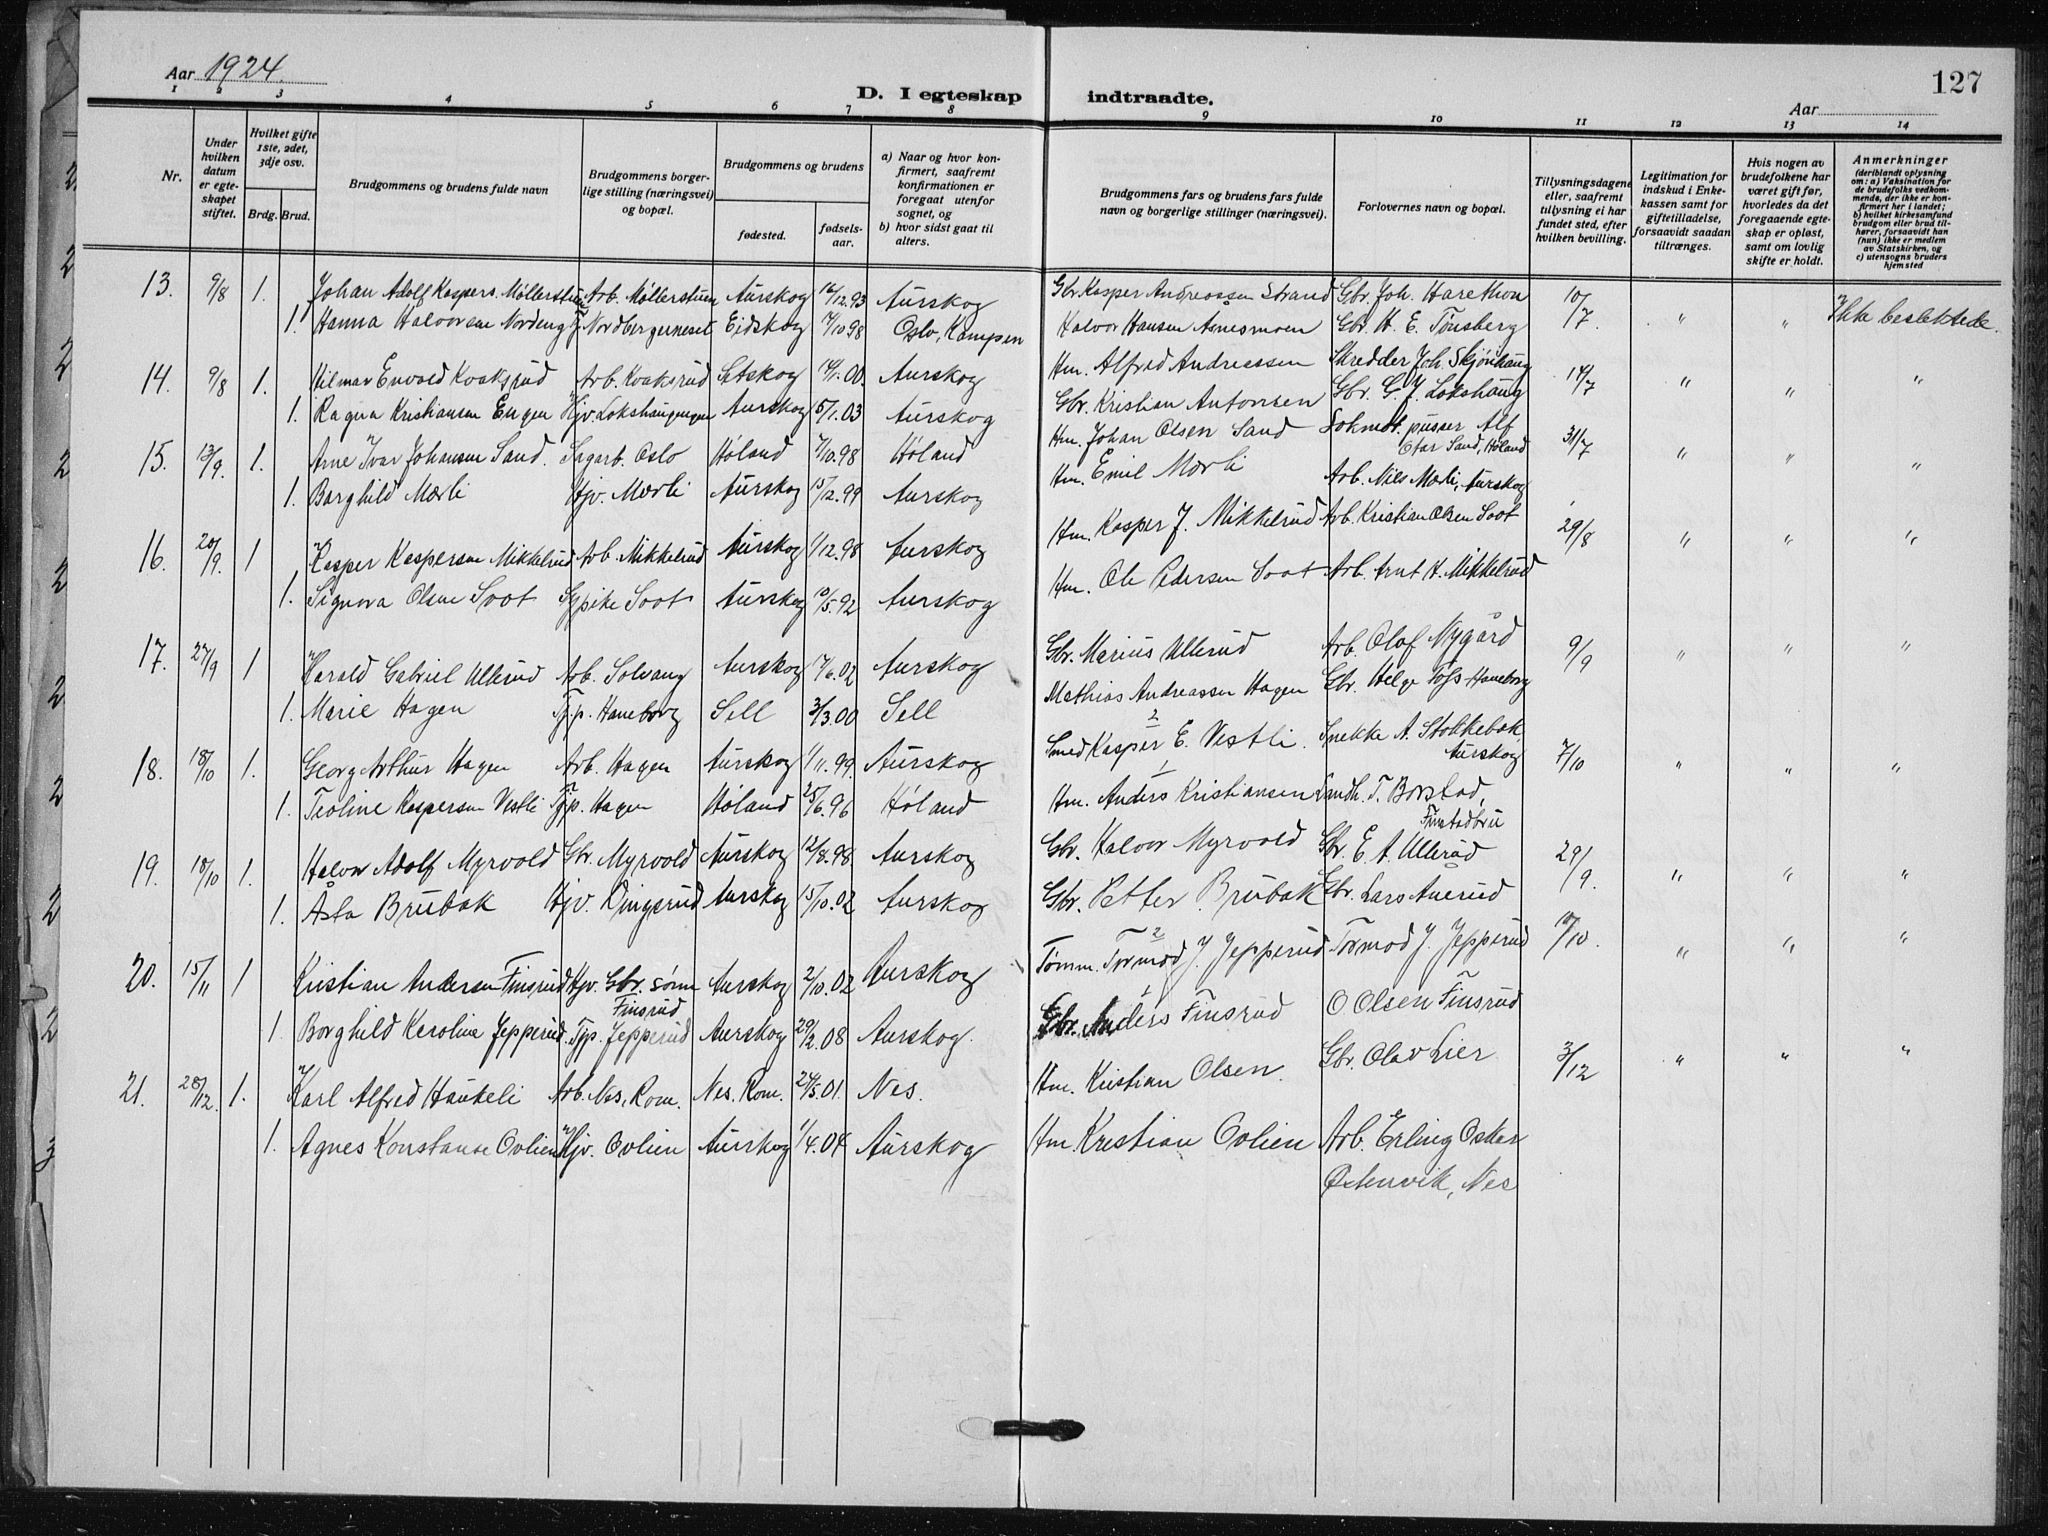 Aar 1924.
127
D. I egteskap indtraadte.
Aar
1 2 3 4 5 6 7 8 9 10 11 12 13 14
Nr.
Under hvilken datum er egteskapet stiftet.
Hvilket gifte 1ste, 2det, 3dje osv.
Brdg. Brud.
Brudgommens og brudens fulde navn
Brudgommens borgerlige stilling (næringsvei) og bopæl.
Brudgommens og brudens
fødested.
fødselsaar.
a) Naar og hvor konfirmert, saafremt konfirmationen er foregaat utenfor sognet, og
b) hvor sidst gaat til alters.
Brudgommens fars og brudens fars fulde navn og borgerlige stillinger (næringsvei).
Forlovernes navn og bopæl.
Tillysningsdagene eller, saafremt tillysning ei har fundet sted, efter hvilken bevilling.
Legitimation for indskud i Enkekassen samt for giftetilladelse, forsaavidt saadan tiltrænges.
Hvis nogen av brudefolkene har været gift før, hvorledes da det foregaaende egteskap er opløst, samt om lovlig skifte er holdt.
Anmerkninger (deriblandt oplysning om: a) Vaksination for de brudefolks vedkommends, der ikke er konfirmert her i landet; b) hvilket kirkesamfund brudgom eller brud tilhører, forsaavidt han (hun) ikke er medlem av Statskirken, og c) utensogns bruders hjemsted
13. 9/8 1. Johan Adolf Kaspers. Møllerstuen Arb. Møllerstuen Aurskog 12.93 Aurskog Gbr. Kasper Andreassen Strand Gbr. Joh. Harethon 10/7 " " Ikke beslektede.
1. Hanna Halvorsen Nordeng Nordbergerneset Eidskog 10 98 Oslo, Kampen Halvor Hansen Agnesmoen Gbr. H. E. Tønsberg
14. 9/8 1. Hilmar Envald Kvaksrud Arb. Kvaksrud Setskog 14/1.00. Aurskog Hm. Alfred Andreassen Skredder Joh. Skjønhaug 14/7 " " "
1. Ragna Kristiansen Engen Hjv. Lokshaugengen Aurskog 5/1.03 Aurskog Gbr. Kristian Antonsen Gbr. G. J. Lokshaug
15. 13/9. 1. Arne Ivar Johansen Sand. Sagarb. Oslo Høland 7/10.98 Høland Hm. Johan Olsen Sand Lokmot. pusser Alf Otar Sand, Høland 31/7 " " "
1. Borghild Mærli Hjv. Mærli Aurskog 15/12.99 Aurskog Hm. Emil Mærli Arb. Nils Mærli, Aurskog
16. 20/9. 1 Kasper Kaspersen Mikkelrud Arb. Mikkelrud Aurskog 1/12.98 Aurskog Hm. Kasper J. Mikkelrud Arb. Kristian Olsen Soot 29/8 " " "
1. Signora Olsen Soot Sypike Soot Aurskog 10/5.92 Aurskog Hm. Ole Pedersen Soot Arb. Arnt H. Mikkelrud
17. 27/9 1 Harald Gabriel Ullerud Arb. Solvang Aurskog 17/6.02 Aurskog Gbr. Marius Ullerud Arb. Olaf Nygård 9/9 " " "
1. Marie Hagen Tj.p. Haneborg Sell 3/3.00 Sell Mathias Andreassen Hagen Gbr. Helge Toss-Haneborg
18. 18/10 1. Georg Arthur Hagen Arb. Hagen Aurskog 1/11.99. Aurskog 2 Smed Kasper E. Vestli. Snekke A. Stokkebæk, Aurskog 7/10 " " "
1. Teoline Kaspersen Vestli Tjp. Hagen Høland 25/6.96 Høland 1 Hm. Anders Kristiansen Landh. T. Borstad, Finstadbru
19. 18/10 1. Halvor Adolf Myrvold Gbr. Myrvold Aurskog 12/8.98 Aurskog Gbr. Halvor Myrvold Gbr. E. A. Ullerud 29/9. " " "
1. Åsta Brubak Hjv. Dingsrud Aurskog 15/10.02 Aurskog Gbr. Petter Brubak Gbr. Lars Auerud
20. 15/11 1 Kristian Andersen Finsrud Hjv. Gbr. sønn Finsrud Aurskog 2/10.02 Aurskog 2 Tømm. Tormod J. Jepperud Tormod J. Jepperud /10. " " "
1. Borghild Karoline Jepperud. Tjp. Jepperud Aurskog 29/2.08 Aurskog. 1 Gbr. Anders Finsrud O Olsen Finsrud
21. 28/12. 1. Karl Alfred Haukeli Arb. Nes, Rom. Nes. Rom. 24/5.01. Nes. Hm. Kristian Olsen. Gbr. Olav Lier 3/12 " " "
1. Agnes Konstanse Ovlien Hjv. Ovlien Aurskog 1/4.04 Aurskog Hm. Kristian Ovlien Arb. Erling Oskar Østenvik, Nes